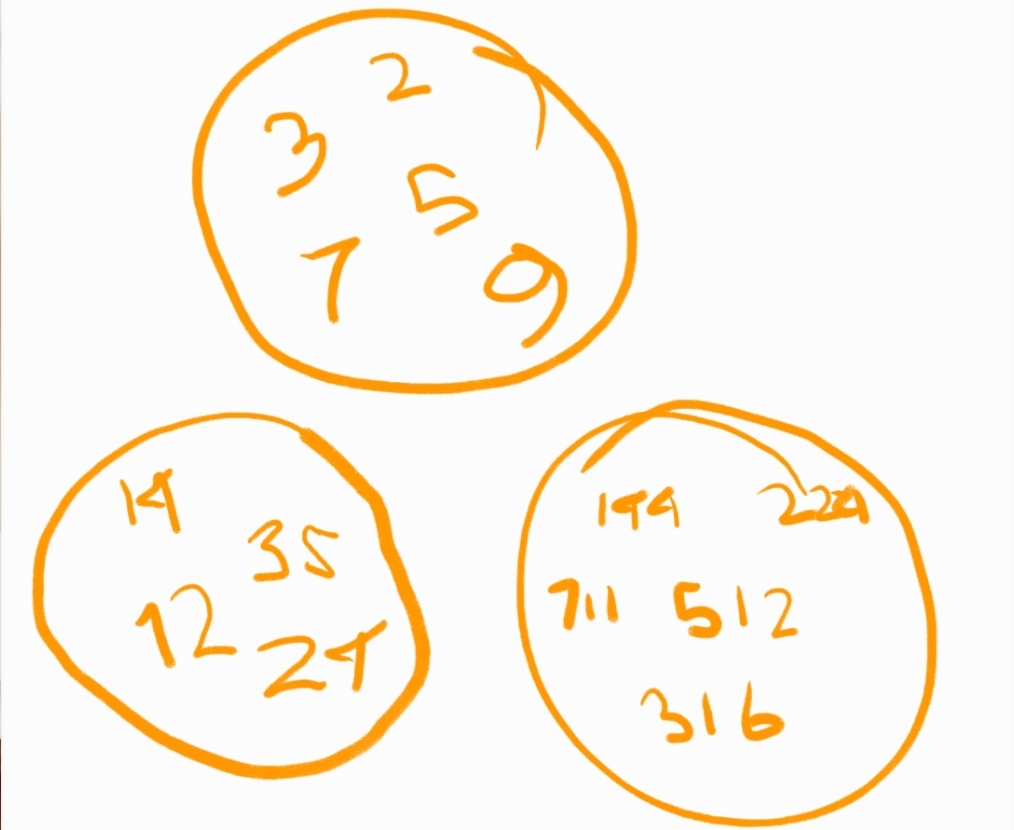 2
3
5
7
9
14
35
12
24
144
224
711 512
316